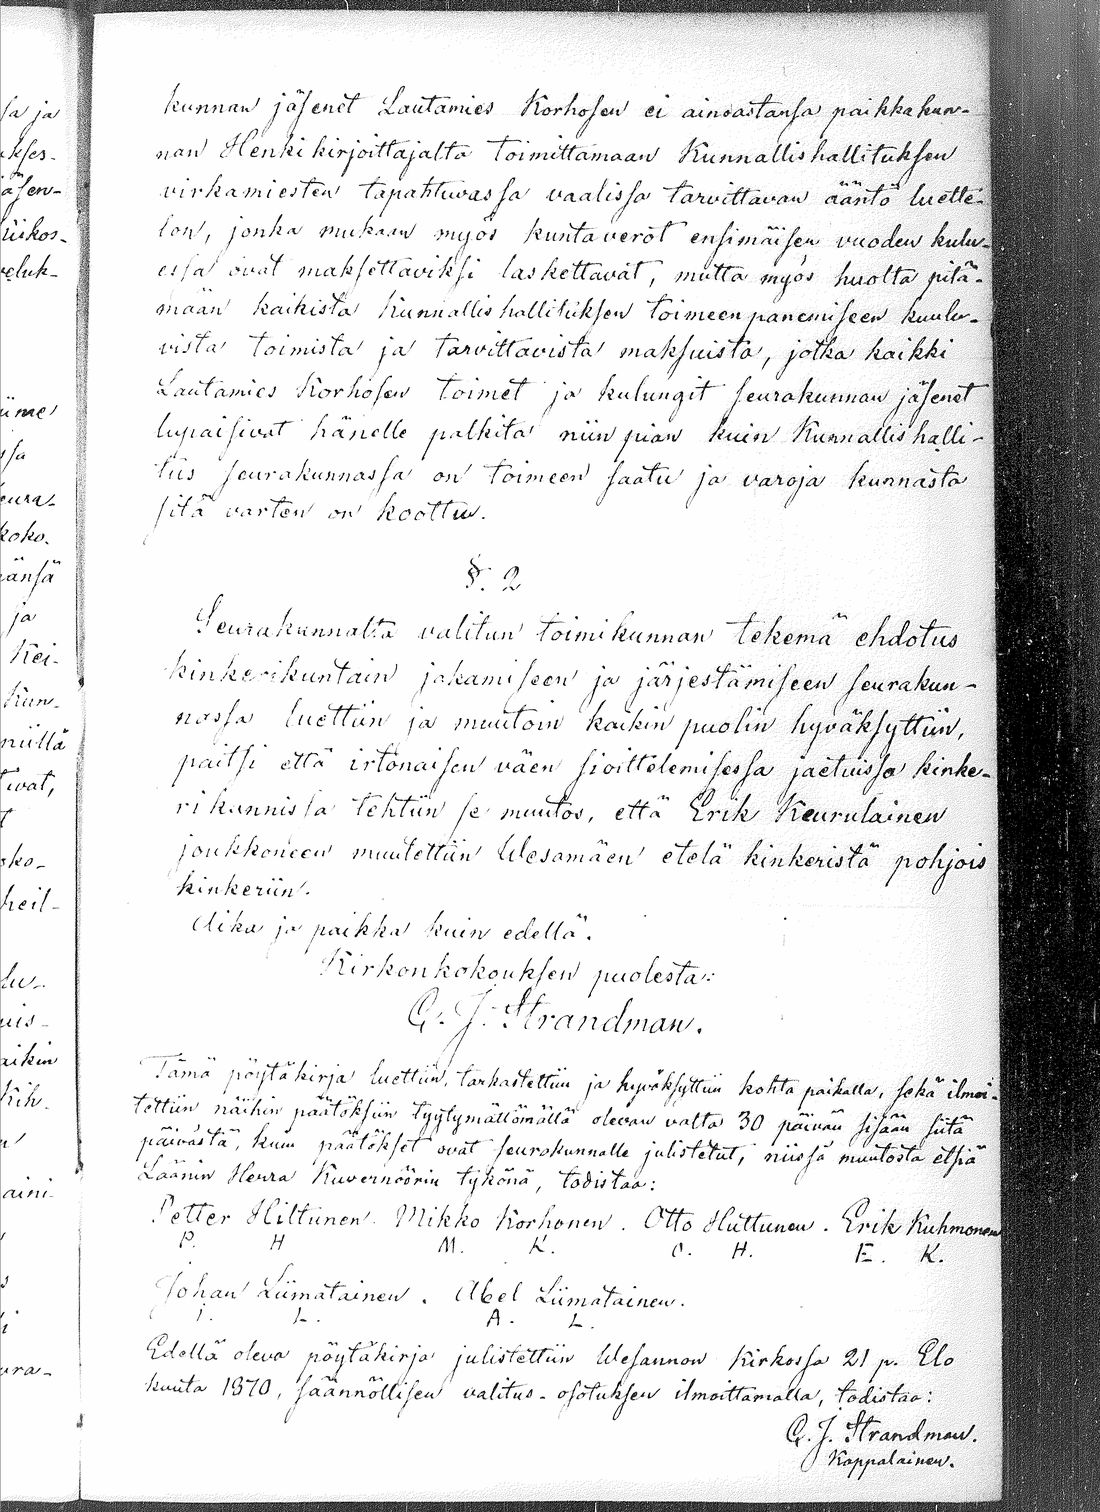 kunnan jäsenet Lautamies Korhosen ei ainoastansa paikkakun-
nan Henkikirjoittajalta toimittamaan Kunnallishallituksen
virkamiesten tapahtuvassa vaalissa tarvittavan ääntö luette-
lon, jonka mukaan myös kuntaverot ensimäisen vuoden kulu-
essa ovat maksettaviksi laskettavat, mutta myös huolta pitä-
mään kaikista Kunnallishallituksen toimeenpanemiseen kuulu-
vista toimista ja tarvittavista maksuista, jotka kaikki
Lautamies Korhosen toimet ja kulungit seurakunnan jäsenet
lupaisivat hänelle palkita niin pian kuin Kunnallishalli-
tus seurakunnassa on toimeen saatu ja varoja kunnasta
sitä varten on koottu.
§. 2
Seurakunnalta valitun toimikunnan tekemä ehdotus
kinkerikuntain jakamiseen ja järjestämiseen seurakun-
nassa luettiin ja muutoin kaikin puolin hyväksyttiin,
paitsi että irtonaisen väen sioittelemisessa jaetuissa kinke-
rikunnissa tehtiin se muutos, että Erik Keurulainen
joukkoneen muutettiin Wesamäen etelä kinkeristä pohjois
kinkeriin.
Aika ja paikka kuin edellä.
Kirkonkokouksen puolesta:
G. J. Strandman.
Tämä pöytäkirja luettiin, tarkastettiin ja hyväksyttiin kohta paikalla, sekä ilmoi-
tettiin näihin päätöksiin tyytymättömällä olevan valta 30 päivän sisään siitä
päivästä, kuin päätökset ovat seurakunnalle julistetut, niissä muutosta etsiä
Läänin Herra Kuvernöörin tykönä, todistaa:
Petter Hiltunen. Mikko Korhonen. Otto Huttunen. Erik Kuhmonen
P. H M. K. O. H. E. K.
Johan Liimatainen. Abel Liimatainen.
I. L. A. L.
Edellä oleva pöytäkirja julistettiin Wesannon Kirkossa 21 p. Elo
kuuta 1870, säännöllisen valitus-osotuksen ilmoittamalla, todistaa:
G. J. Strandman.
Kappalainen.